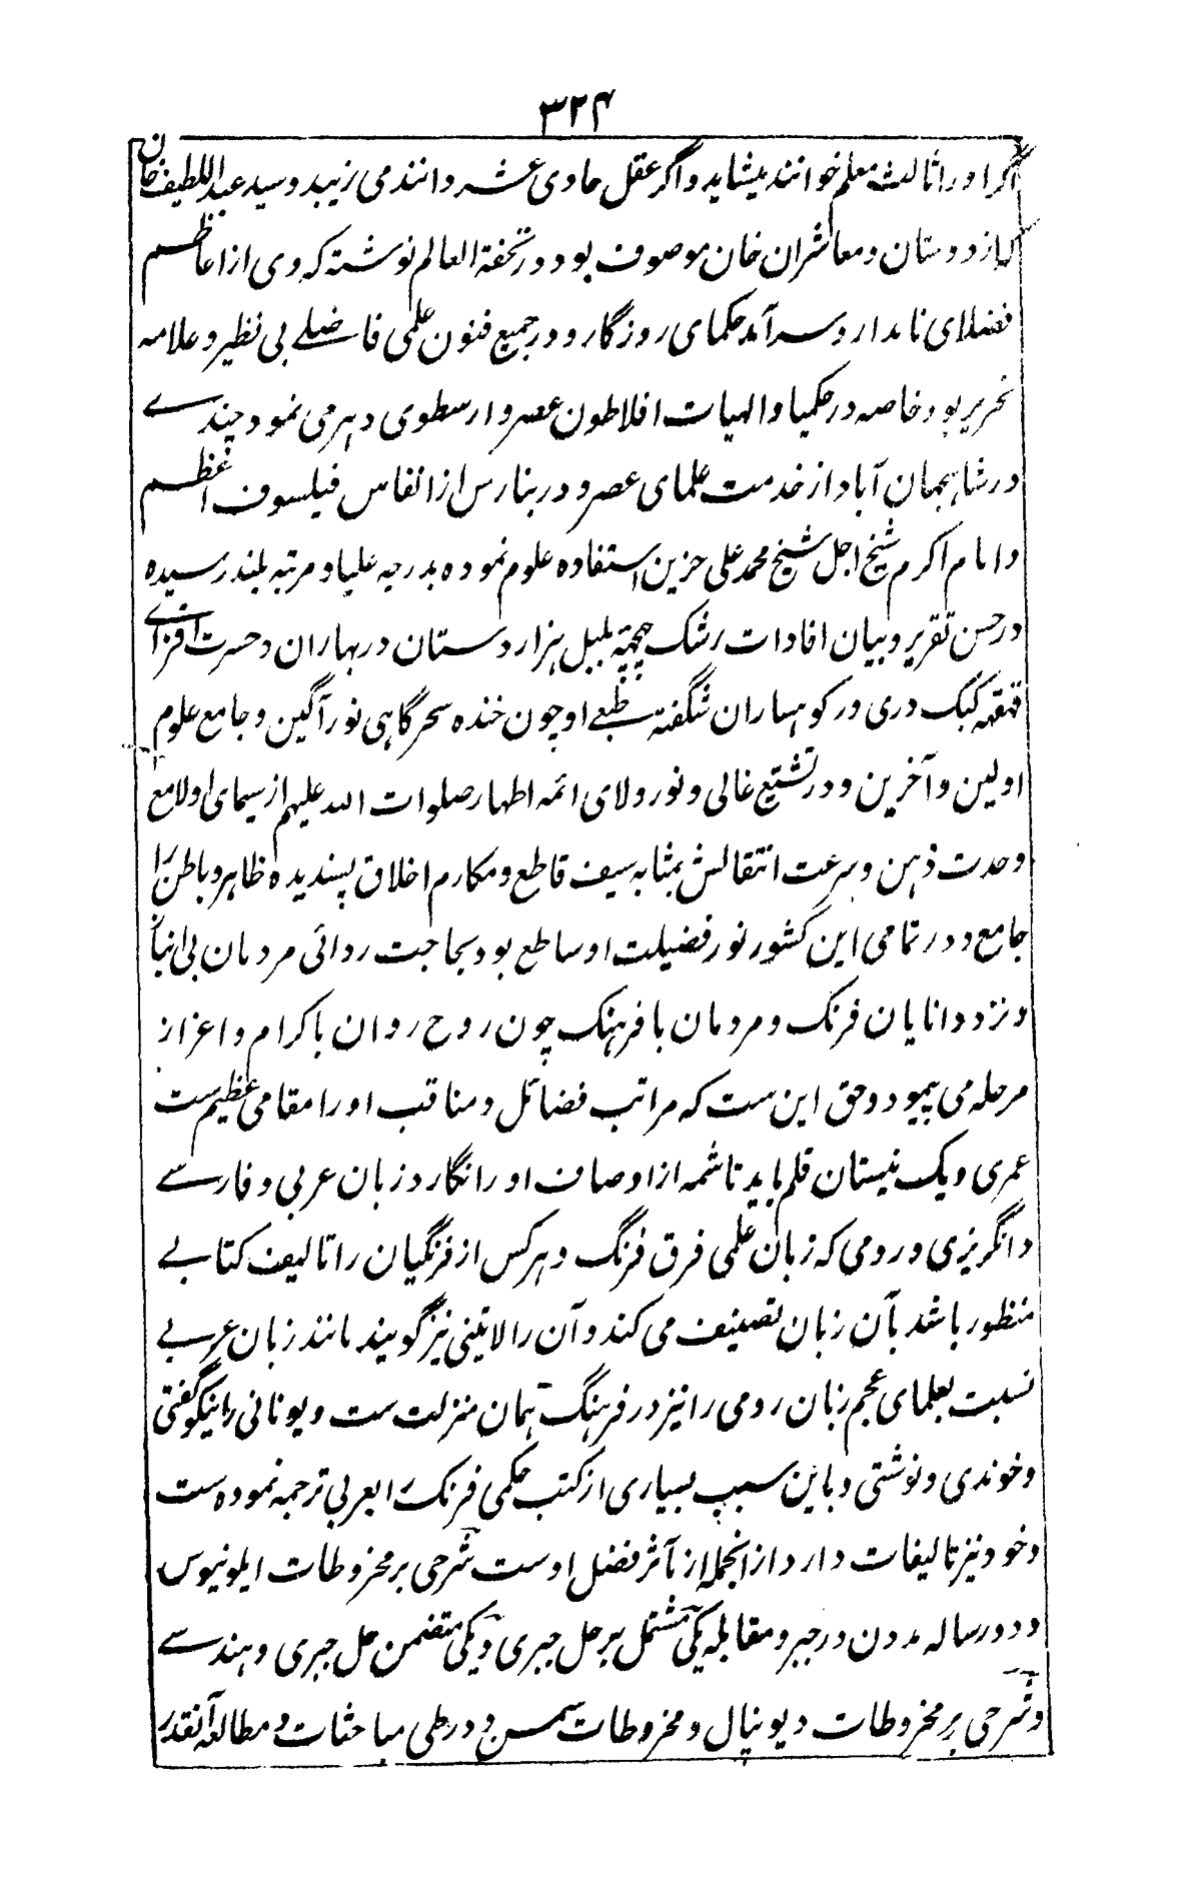 ۳۲۴
اگر او را ثالث معلم خوانند میشاید و اگر عقل حاوی عشر دانند می زیبد و سید عبد اللطیف خان
که از دوستان و معاشران خان موصوف بود در تحفة العالم نوشته که وی از اعاظم
فضلای نامدار و سر آمد حکمای روزگار و در جمیع فنون علمی فاضلے بی نظیر و علامه
نحریر بود خاصه در حکمیات و الهیات افلاطون عصر و ارسطوی دهر می نمود چندے
در شاہجهان آباد از خدمت علمای عصر و در بنارس از انفاس فیلسوف اعظم
و امام اکرم شیخ اجل شیخ محمد علی حزین استفاده علوم نموده بدرجه علیا و مرتبه بلند رسیده
در حسن تقریر و بیان افادات رشک چهچهۀ بلبل هزار دستان در بهاران و حسرت افزاے
قهقهه کبک دری در کوہساران شگفته طبعے او چون خنده سحرگاہی نور آگین و جامع علوم
اولین و آخرین و در تشیع غالی و نور ولای ائمه اطهار صلوات الله علیهم از سیمای او لامع
و حدت ذہن و سرعت انتقالش بمثابه سیف قاطع و مکارم اخلاق پسندیده ظاہر و باطن را
جامع و در تمامی این کشور نور فضیلت او ساطع بود بحاجت روائی مردمان بی انباز
و نزد دانایان فرنگ و مردمان با فرہنگ چون روح روان باکرام و اعزاز
مرحله می پیمود و حق این ست که مراتب فضائل و مناقب او را مقامی عظیم ست
عمری و یک نیستان قلم باید تا شمه از اوصاف او را نگارد زبان عربی و فارسے
و انگریزی و رومی که زبان علمی فرق فرنگ و ہر کس از فرنگیان را تالیف کتابے
منظور باشد بآن زبان تصنیف می کند و آن را لاتینی نیز گویند مانند زبان عربے
نسبت بعلمای عجم زبان رومی را نیز در فرہنگ ہمان منزلت ست و یونانی را نیکو گفتی
و خوندی و نوشتی و باین سبب بسیاری از کتب حکمی فرنگ را بعربی ترجمه نموده ست
و خود نیز تالیفات دارد از انجمله از مآثر فضل اوست شرحی بر مخروطات ابلونیوس
و دو رساله مدون در جبر و مقابله یکی مشتمل بر حل جبری و یکی متضمن حل جبری و ہندسے
و شرحی بر مخروطات دیونپال و مخروطات سمسن و در طی مباحثات و مطالعه آنقدر